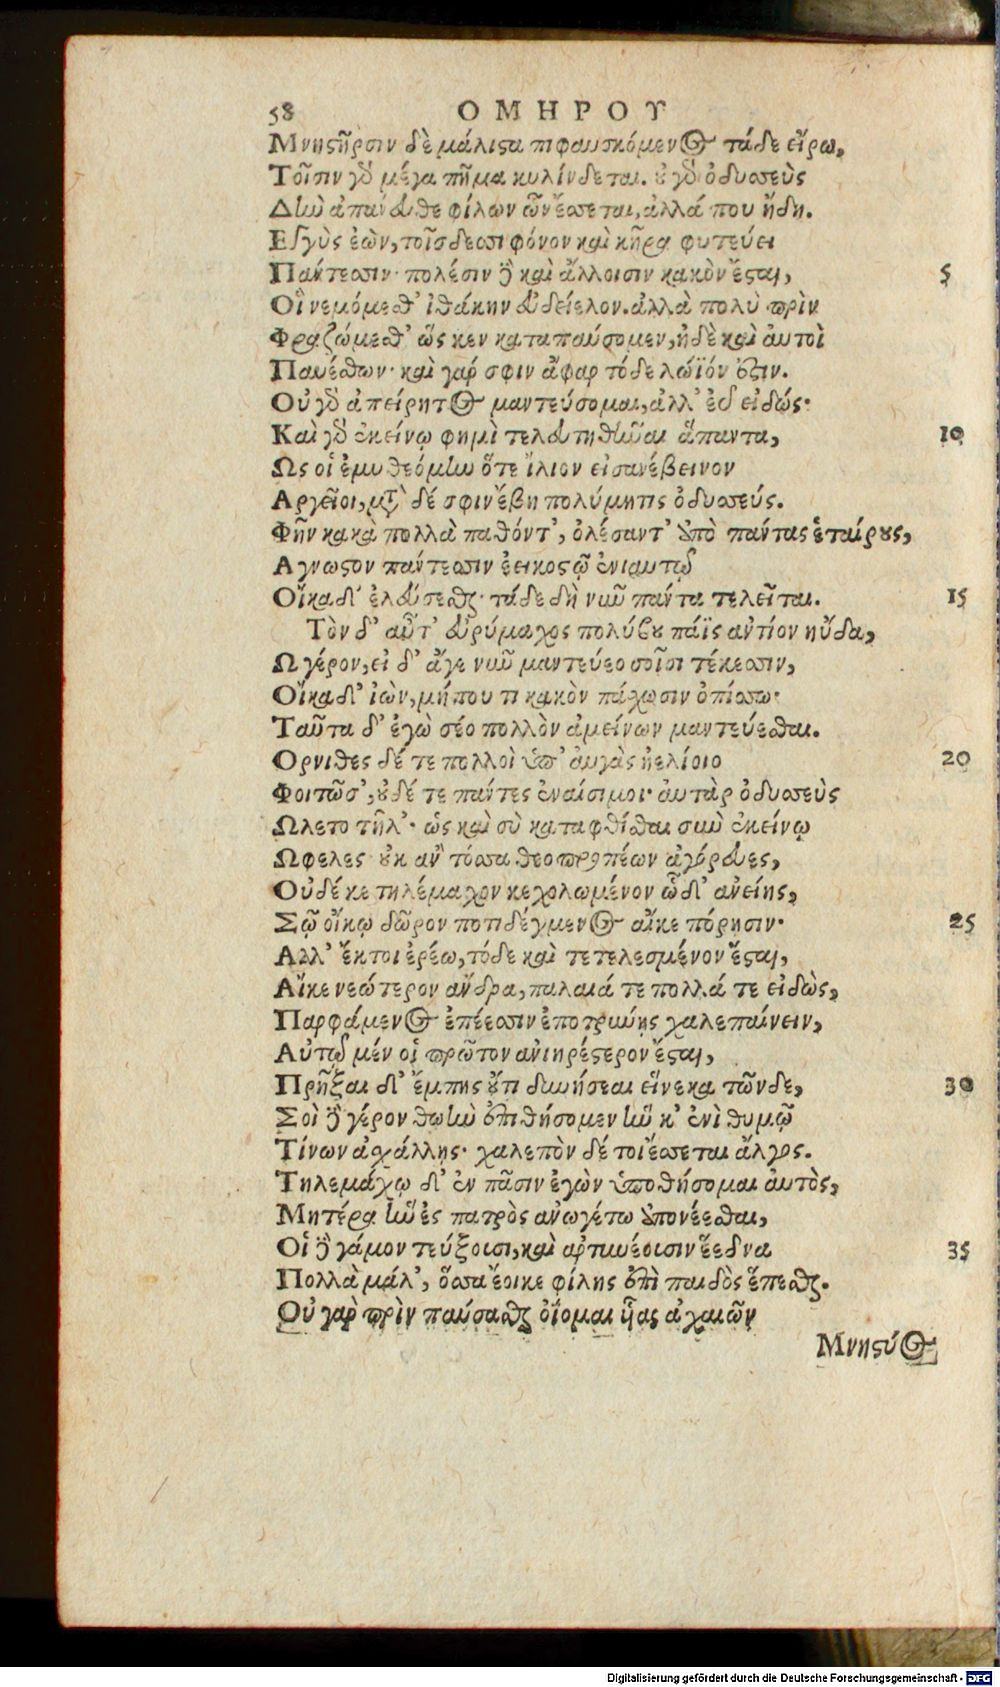 58 ΟΜΗΡΟΥ
Μνηστῆρσιν δὲ μάλιστα πιφαυσκόμενος τάδε εἴρω,
Τοῖσιν γὸ μέγα πῆμα κυλίνδεται. οὐ γὸ ὀδυσσεὺς
Δὴν ἀπάνευθε φίλων ὧν ἔσσεται, ἀλλά που ἤδη.
Εγγὺς ἐὼν, τοῖσδεσσι φόνον καὶ κῆρα φυτεύει
Πάντεσσιν· πολέσιν δὲ καὶ ἄλλοισιν κακὸν ἔσται, 5
Οἳ νεμόμεσθ' ἰθάκην εὐδείελον. ἀλλὰ πολὺ πρὶν
Φραζώμεσθ' ὥς κεν καταπαύσομεν, ἠδὲ καὶ ἀυτοὶ
Παυέσθων· καὶ γάρ σφιν ἄφαρ τόδε λώϊόν ἐστιν.
Οὐ γὸ ἀπείρητος μαντεύσομαι, ἀλλ' ἐὸ εἰδώς·
Καὶ γὸ ἐκείνῳ φημὶ τελευτηθῆναι ἅπαντα, 10
Ως οἱ ἐμυθεόμην ὅτε ἴλιον εἰσανέβεινον
Αργεῖοι, μετὰ δέ σφιν ἔβη πολύμητις ὀδυσσεύς.
Φῆν κακὰ πολλὰ παθόντ', ὀλέσαντ' ἀπὸ πάντας ἑταίρους,
Αγνωστον πάντεσσιν ἐεικοστῷ ἐνιαυτῷ
Οἴκαδ' ἐλεύσεσθαι· τάδε δὴ νῦν πάντα τελεῖται. 15
Τὸν δ' αὖτ' εὐρύμαχος πολύβου πάϊς αντίον ηὔδα,
Ω γέρον, εἰ δ' ἄγε νῦν μαντεύεο σοῖσι τέκεσσιν,
Οἴκαδ' ἰὼν, μή που τι κακὸν πάσχωσιν ὀπίσσω·
Ταῦτα δ' ἐγὼ σέο πολλὸν ἀμείνων μαντεύεσθαι.
Ορνιθες δέ τε πολλοὶ ὑπ' ἀυγὰς ἠελίοιο 20
Φοιτῶσ', οὐδέ τε πάντες ἐναίσιμοι· ἀυτὰρ ὀδυσσεὺς
Ωλετο τῆλ'· ὡς καὶ σὺ καταφθίσθαι σὺν ἐκείνῳ
Ωφελες οὐκ ἂν τόσσα θεοπροπέων ἀγόρευες,
Οὐδέ κε τηλέμαχον κεχολωμένον ὧδ' ανείης,
Σῷ οἴκῳ δῶρον ποτιδέγμενος αἴκε πόρησιν· 25
Αλλ' ἔκ τοι ἐρέω, τόδε καὶ τετελεσμένον ἔσται,
Αἴκε νεώτερον ἄνδρα, παλαιά τε πολλά τε εἰδὼς,
Παρφάμενος ἐπέεσσιν ἐποτρύνῃς χαλεπαίνειν,
Αὐτῷ μέν οἱ πρῶτον ανιηρέστερον ἔσται,
Πρῆξαι δ' ἔμπης οὔτι δυνήσεαι εἵνεκα τῶνδε, 30
Σοὶ δὲ γέρον θωὴν ἐπιθήσομεν ἥν κ' ἐνὶ θυμῷ
Τίνων ἀσχάλλῃς· χαλεπὸν δέ τοι ἔσσεται ἄλγος.
Τηλεμάχῳ δ' ἐν πᾶσιν ἐγὼν ὑποθήσομαι ἀυτὸς,
Μητέρα ἣν ἐς πατρὸς ανωγέτω ἀπονέεσθαι,
Οἱ δὲ γάμον τεύξουσι, καὶ αρτυνέουσιν ἕεδνα 35
Πολλὰ μάλ', ὅσσα ἔοικε φίλης ἐπὶ παιδὸς ἕπεσθαι.
Οὐ γὰρ πρὶν παύσασθαι ὀΐομαι ἧας ἀχαιῶν
Μνηστύος
Digitalisierung gefördert durch die Deutsche Forschungsgemeinschaft - DFG